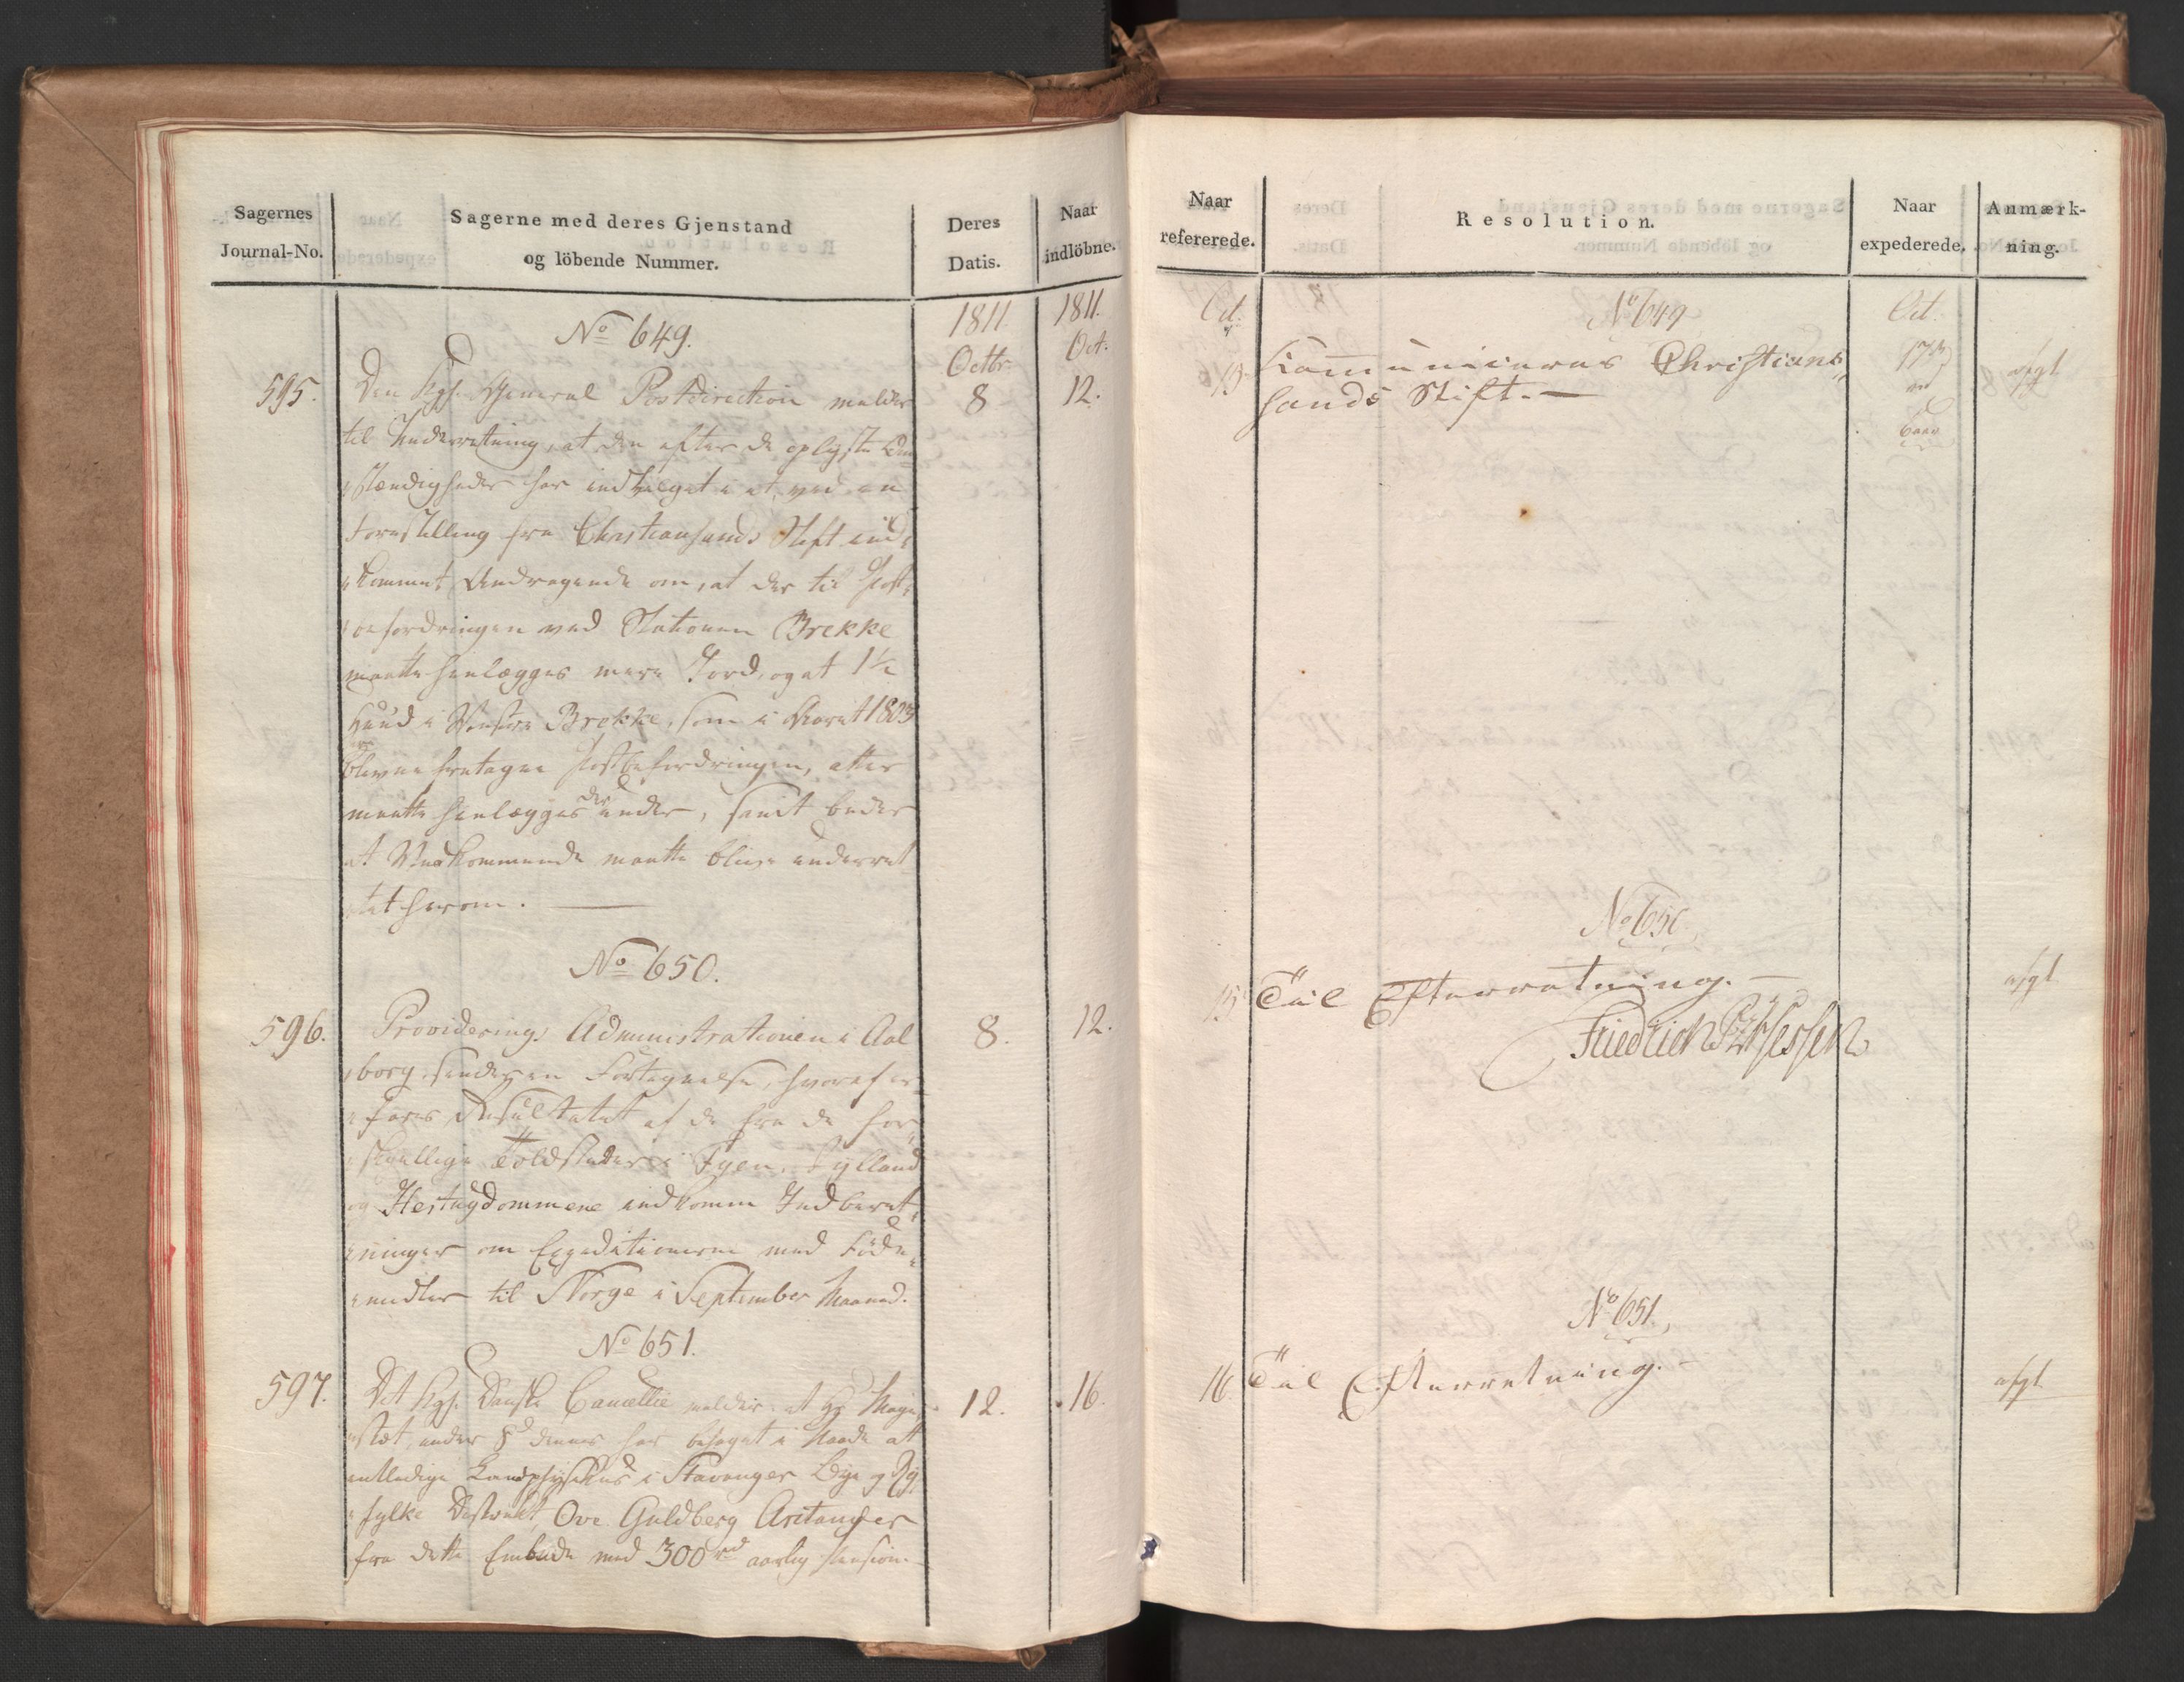 Sagernes
Journal-No.
Sagerne med deres Gjenstand
og löbende Nummer.
Deres
Datis.
Naar
indlöbne.
1811
Octbr
1811.
Oct.
No 649.
595.
Den Kgl. General Postdirection melder
8
12.
til Underretning, at den efter de oplyste Om
stændigheder har indvilget i et, ved en
Forestilling fra Christiansands Stift ind
kommet Andragende om, at der til Post
befordringen ved Stationen Brekke
maatte henlægges mere Jord, og at 1½
Huud i Brekke, som i Aaret 1803
ere
blevne fratagne Postbefordringen, atter
maatte henlægges derunder, samt beder
at Vedkommende maatte blive underret
tet herom.
No 650.
596.
Providerings Administrationen i Aal
8.
12.
borg, sender en Fortegnelse, hvoraf er
fares Resultatet af de fra de for
skjellige Toldsteder i Fyen, Jylland
og Hertugdommene indkomne Indberet
ninger om Expeditionerne med Føde
midler til Norge i September Maaned.
No 651.
597.
Det Kgl. Danske Cancellie melder: at Hs Maje
12.
16.
stæt, under 8de dennes har behaget i Naade at
entledige Landphysikus i Stavanger Bye og Ry
fylke District, Ove Guldberg Arctander
fra dette Embede med 300 rd aarlig Pension.
Naar
refererede.
Resolution.
Naar
expederede.
Anmærk-
ning.
Oct.
No 649
Oct.
13
Kommuniceres Christian
17
afgl
sands Stift.
No 650.
15
Til Efterretning.
afgl
No 651.
16
Til Efterretning.
afgl